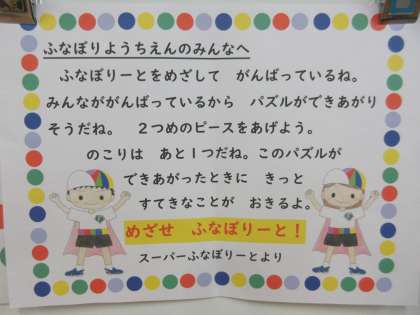 ふなぼりようちえんのみんなへ
ふなぽりーとをめざして　がんばっているね。
みんながんばっているから　パズルができあがり
そうだね。　２つめのピースをあげよう。
のこりは　あと１つだね。このパズルが
できあがったときに　きっと
すてきなことが　おきるよ。
めざせ　ふなぽりーと！
スーパーふなぽりーとより